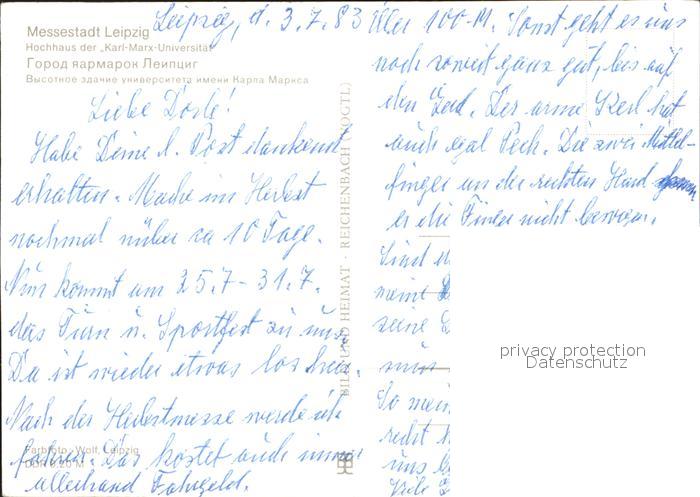 Messestadt Leipzig
Hochhaus der „Karl-Marx-Universität"
Город ярмарок Лейпциг
Высотное здание университета имени Карла Маркса
Leipzig, d. 3.7.83
Liebe Dorle!
Habe Deine l. Post dankend
erhalten. Mache im Herbst
nochmal rüber ca 10 Tage.
Nun kommt am 25.7 - 31.7.
das Turn u. Sportfest zu uns.
Da ist wieder etwas los hier.
Nach der Herbstmesse werde ich
fahren. Das kostet auch immer
allerhand Fahrgeld.
Farbfoto: Wolf, Leipzig
DDR 0,20 M
BILD UND HEIMAT · REICHENBACH (VOGTL)
Über 100-M. Sonst geht es uns
noch soweit ganz gut, bis auf
den Der arme Kerl hat
auch egal Pech. Die zwei Mittel-
finger an der rechten Hand kann
er die Finger nicht bewegen.
Sind
meint
seine
uns
So mein
recht
uns
Viele
privacy protection
Datenschutz